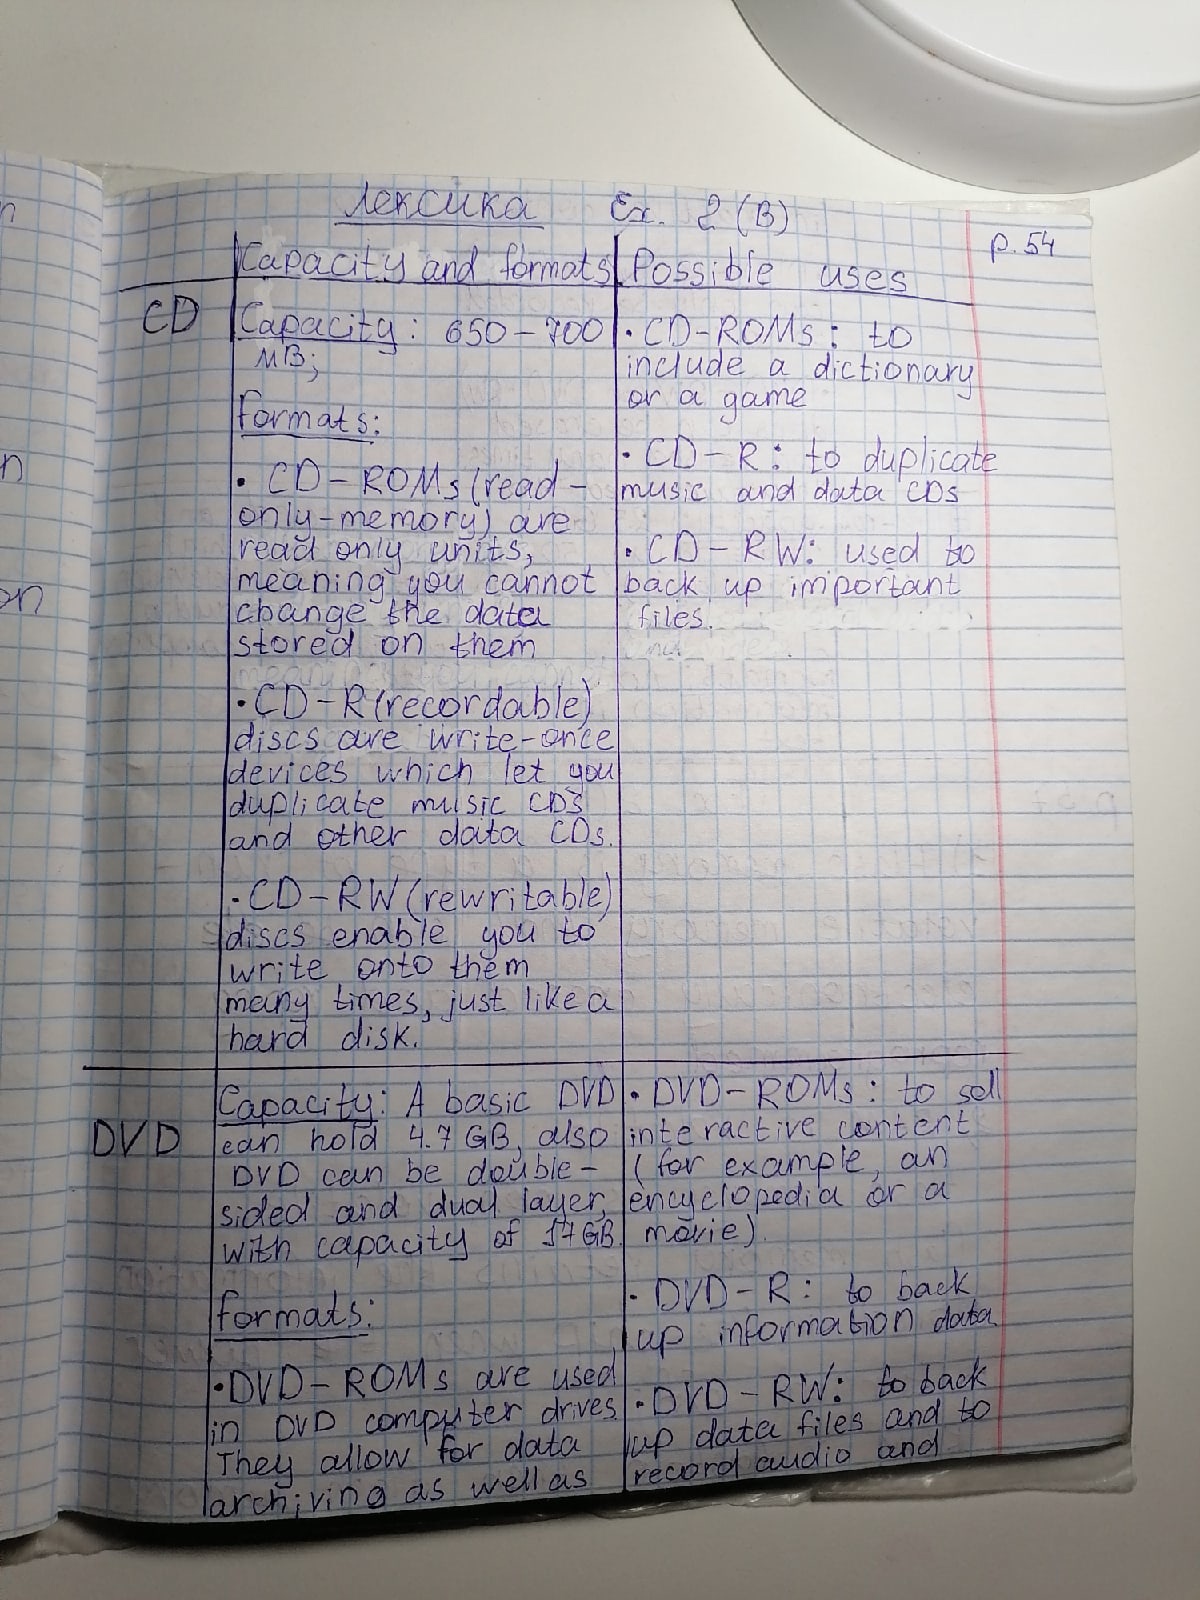 Лексика Ex. 2 (B)
p. 54
Capacity and formats
Possible uses
CD
Capacity: 650-700
MB;
formats:
• CD-ROMs (read-
only-memory) are
read only units,
meaning you cannot
change the data
stored on them
• CD-R (recordable)
discs are write-once
devices which let you
duplicate music CDs
and other data CDs.
• CD-RW (rewritable)
discs enable you to
write onto them
many times, just like a
hard disk.
• CD-ROMs: to
include a dictionary
or a game
• CD-R: to duplicate
music and data CDs
• CD-RW: used to
back up important
files.
DVD
Capacity: A basic DVD
can hold 4.7 GB, also
DVD can be double-
sided and dual layer,
with capacity of 17 GB.
formats:
• DVD-ROMs are used
in DVD computer drives
They allow for data
archiving as well as
• DVD-ROMs: to sell
interactive content
(for example, an
encyclopedia or a
movie).
• DVD-R: to back
up information data
• DVD-RW: to back
up data files and to
record audio and
n
n
on